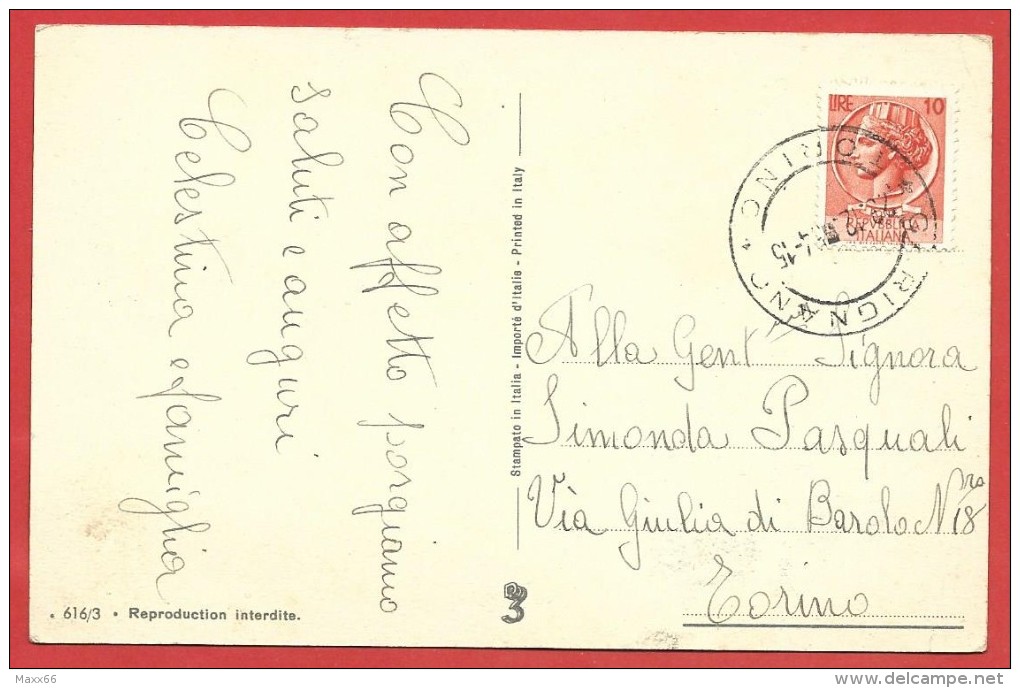 Con affetto porgiamo
saluti e auguri
Celestina e famiglia
616/3 • Reproduction interdite.
Stampato in Italia - Importé d'Italie - Printed in Italy
3
LIRE 10
REPVBBLICA
ITALIANA
TORINO
Alla Gent Signora
Simonda Pasquali
Via Giulia di Barolo Nro 18
Torino
Maxx66
delcampe.net